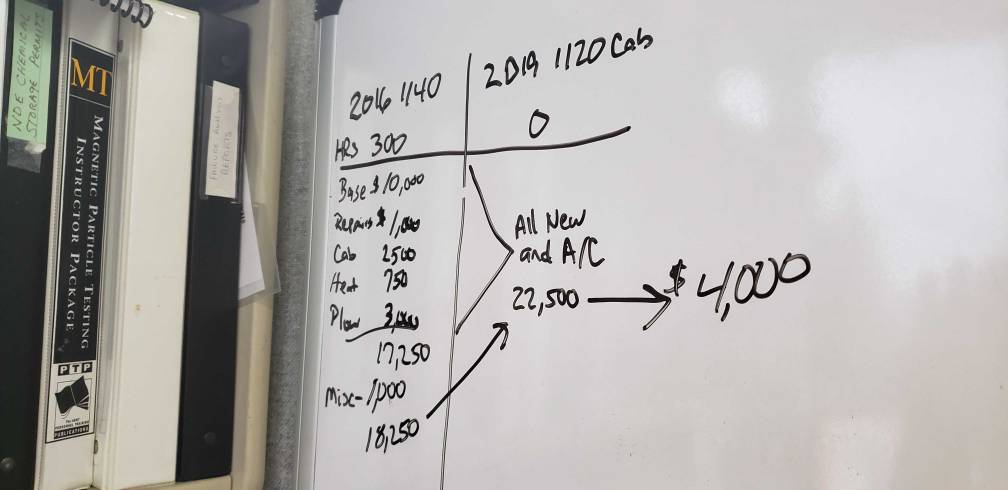 NDE CHEMICAL
STORAGE PERMITS
MT
MAGNETIC PARTICLE TESTING
INSTRUCTOR PACKAGE
PTP
PUBLICATIONS
REPORTS
2016 1140
2019 1120 Cab
HRS 300
0
Base $10,000
Repairs $1,000
Cab 2500
Heat 750
Plow 3,000
17,250
Misc- 1,000
18,250
All New
and A/C
22,500
$4,000